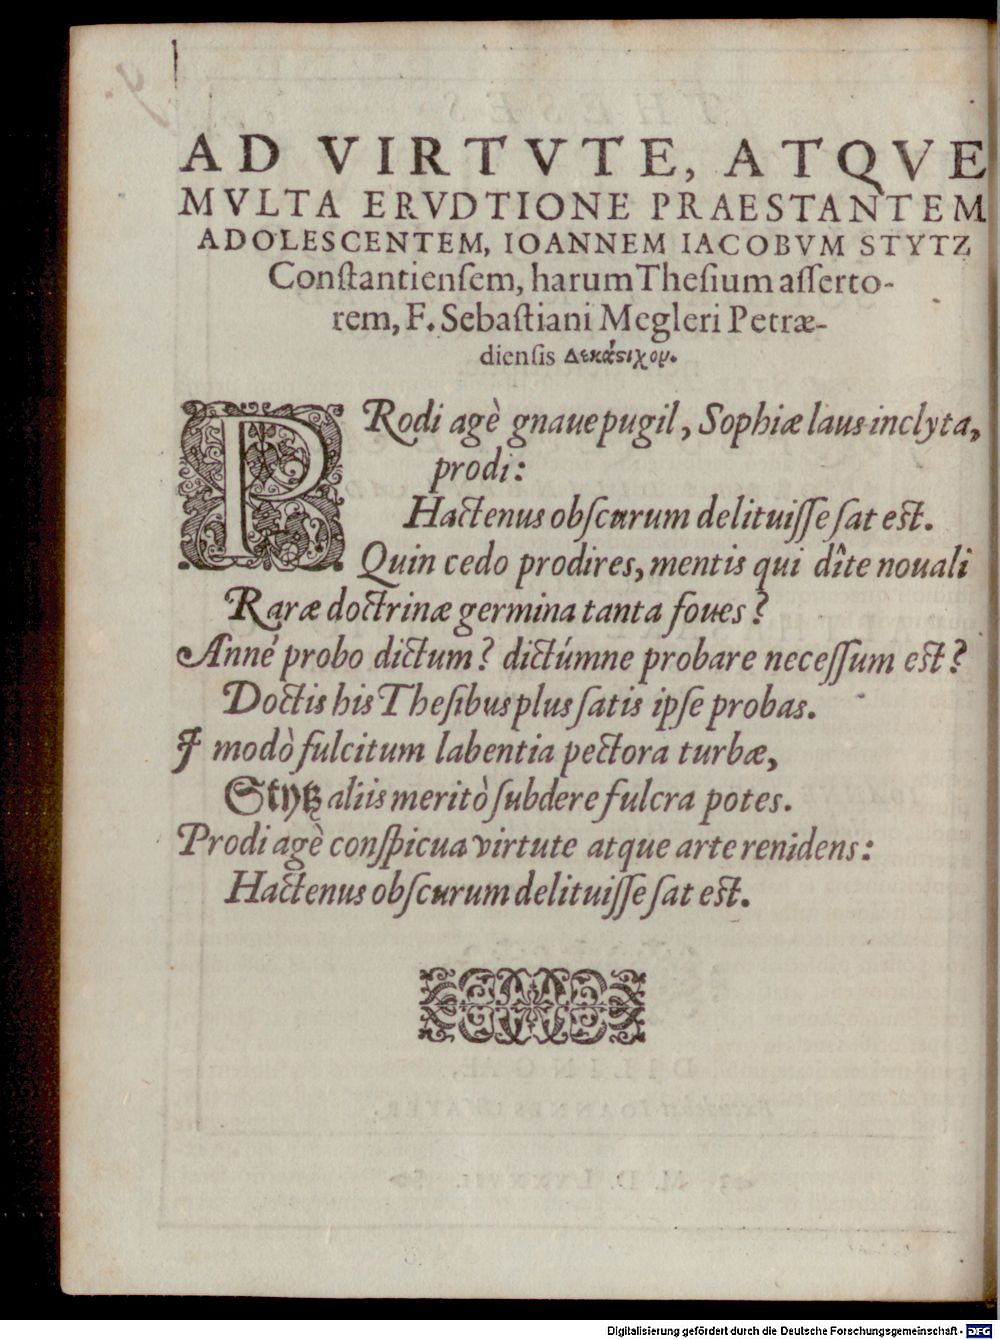 AD VIRTVTE, ATQVE
MVLTA ERVDTIONE PRAESTANTEM
ADOLESCENTEM, IOANNEM IACOBVM STYTZ
Constantiensem, harum Thesium asserto-
rem, F. Sebastiani Megleri Petræ-
diensis Δεκάστιχον.
PRodi agè gnaue pugil, Sophiæ laus inclyta,
prodi:
Hactenus obscurum delituisse sat est.
Quin cedo prodires, mentis qui dîte nouali
Raræ doctrinæ germina tanta foues?
Anné probo dictum? dictúmne probare necessum est?
Doctis his Thesibus plus satis ipse probas.
I modò fulcitum labentia pectora turbæ,
Stytz aliis meritò subdere fulcra potes.
Prodi agè conspicua virtute atque arte renidens:
Hactenus obscurum delituisse sat est.
Digitalisierung gefördert durch die Deutsche Forschungsgemeinschaft - DFG